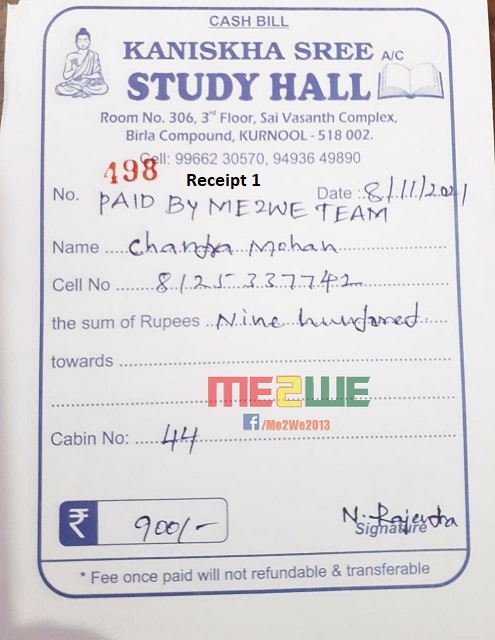 CASH BILL
KANISKHA SREE A/C
STUDY HALL
Room No. 306, 3rd Floor, Sai Vasanth Complex,
Birla Compound, KURNOOL - 518 002.
Cell: 99662 30570, 94936 49890
498
Receipt 1
No. Date : 8/11/2021
PAID BY ME2WE TEAM
Name ....Chandra Mohan
Cell No ....8125337742
the sum of Rupees ..Nine hundared
towards
ME2WE
f /Me2We2013
Cabin No: ....44
₹ 900/-
N. Rajendra
Signature
* Fee once paid will not refundable & transferable